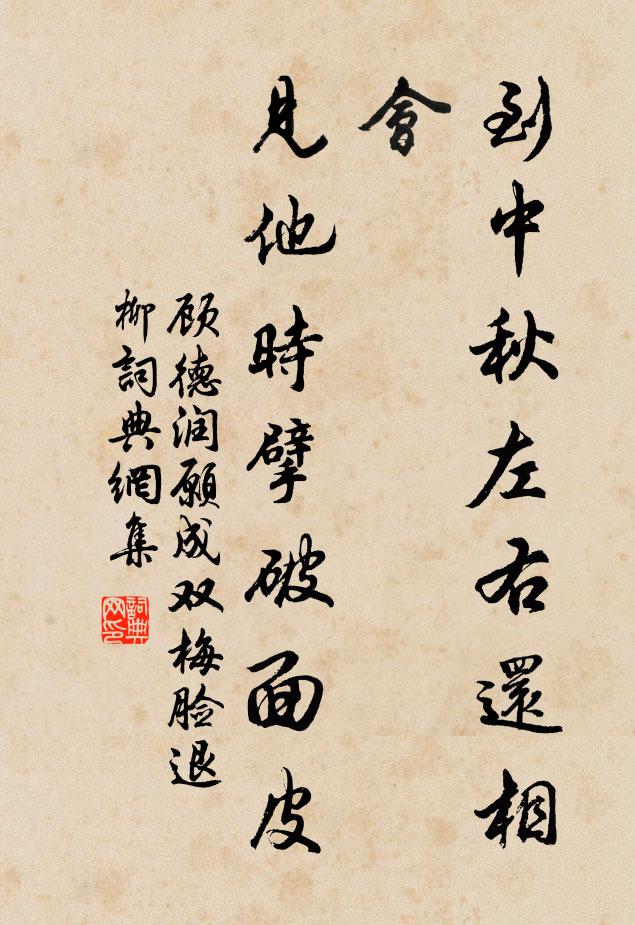 到中秋左右還相
會
見他時擘破面皮
顾德润願成双梅脸退
柳詞典網集
詞典网印